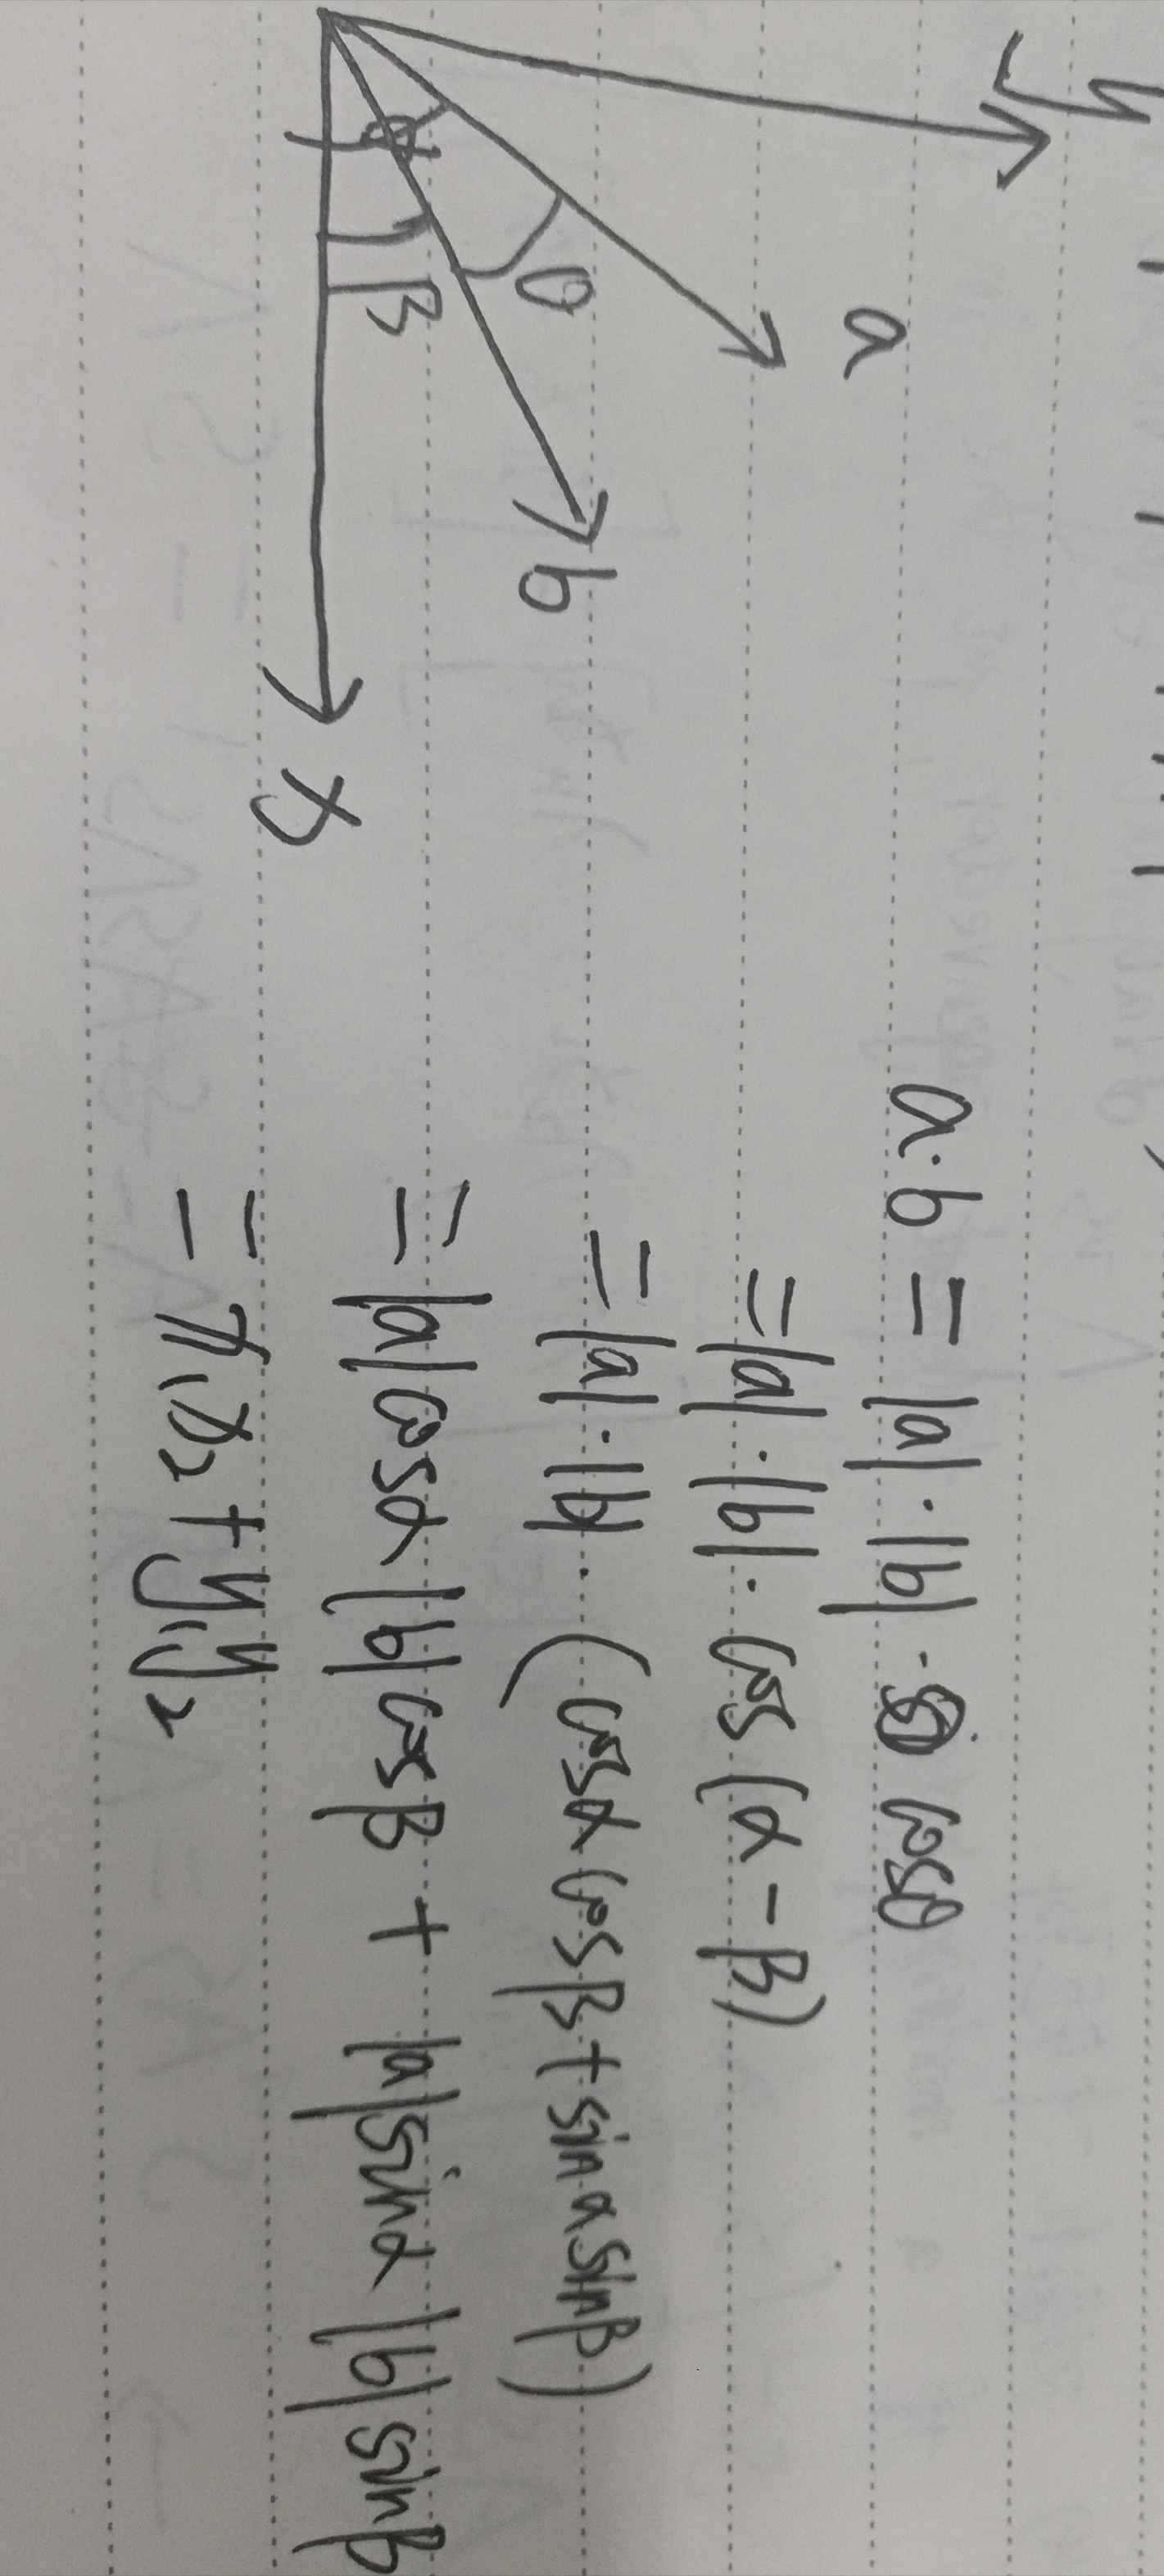 y
a
b
θ
α
β
x
a·b = |a|·|b|· cosθ
= |a|·|b|· cos(α-β)
= |a|·|b|·(cosαcosβ+sinαsinβ)
= |a|cosα|b|cosβ + |a|sinα|b|sinβ
= x₁x₂+y₁y₂